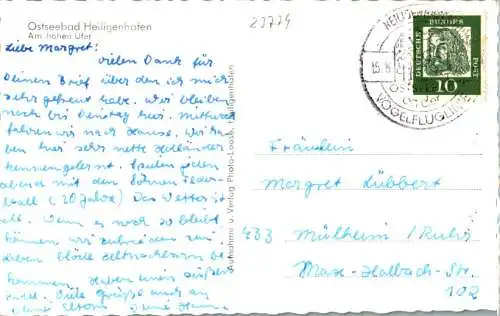 Ostseebad Heiligenhafen
Am hohen Ufer
23774
Liebe Margret!
vielen Dank für
Deinen Brief über den ich mich
sehr gefreut habe. Wir bleiben
noch bis Dienstag hier. Mittwoch
fahren wir nach Hause. Wir ha-
ben hier sehr nette Holländer
kennengelernt. Spielen jeden
abend mit den Söhnen Feder-
ball (20 Jahre) Das Wetter ist
toll. Wenn es noch so bleibt
können wir zufrieden sein.
Haben blöde Zeltnachbarn be-
kommen. Haben einen süßen
Viele Grüße auch an
Deine Eltern Deine
Aufnahme u. Verlag Photo-Loose, Heiligenhafen
HEILIGENHAFEN
15.8.
OSTSEE
an der
VOGELFLUGLINIE
DEUTSCHE BUNDESPOST
10
Fräulein
Margret Lübbert
433 Mülheim / Ruhr
Max-Halbach-Str.
102